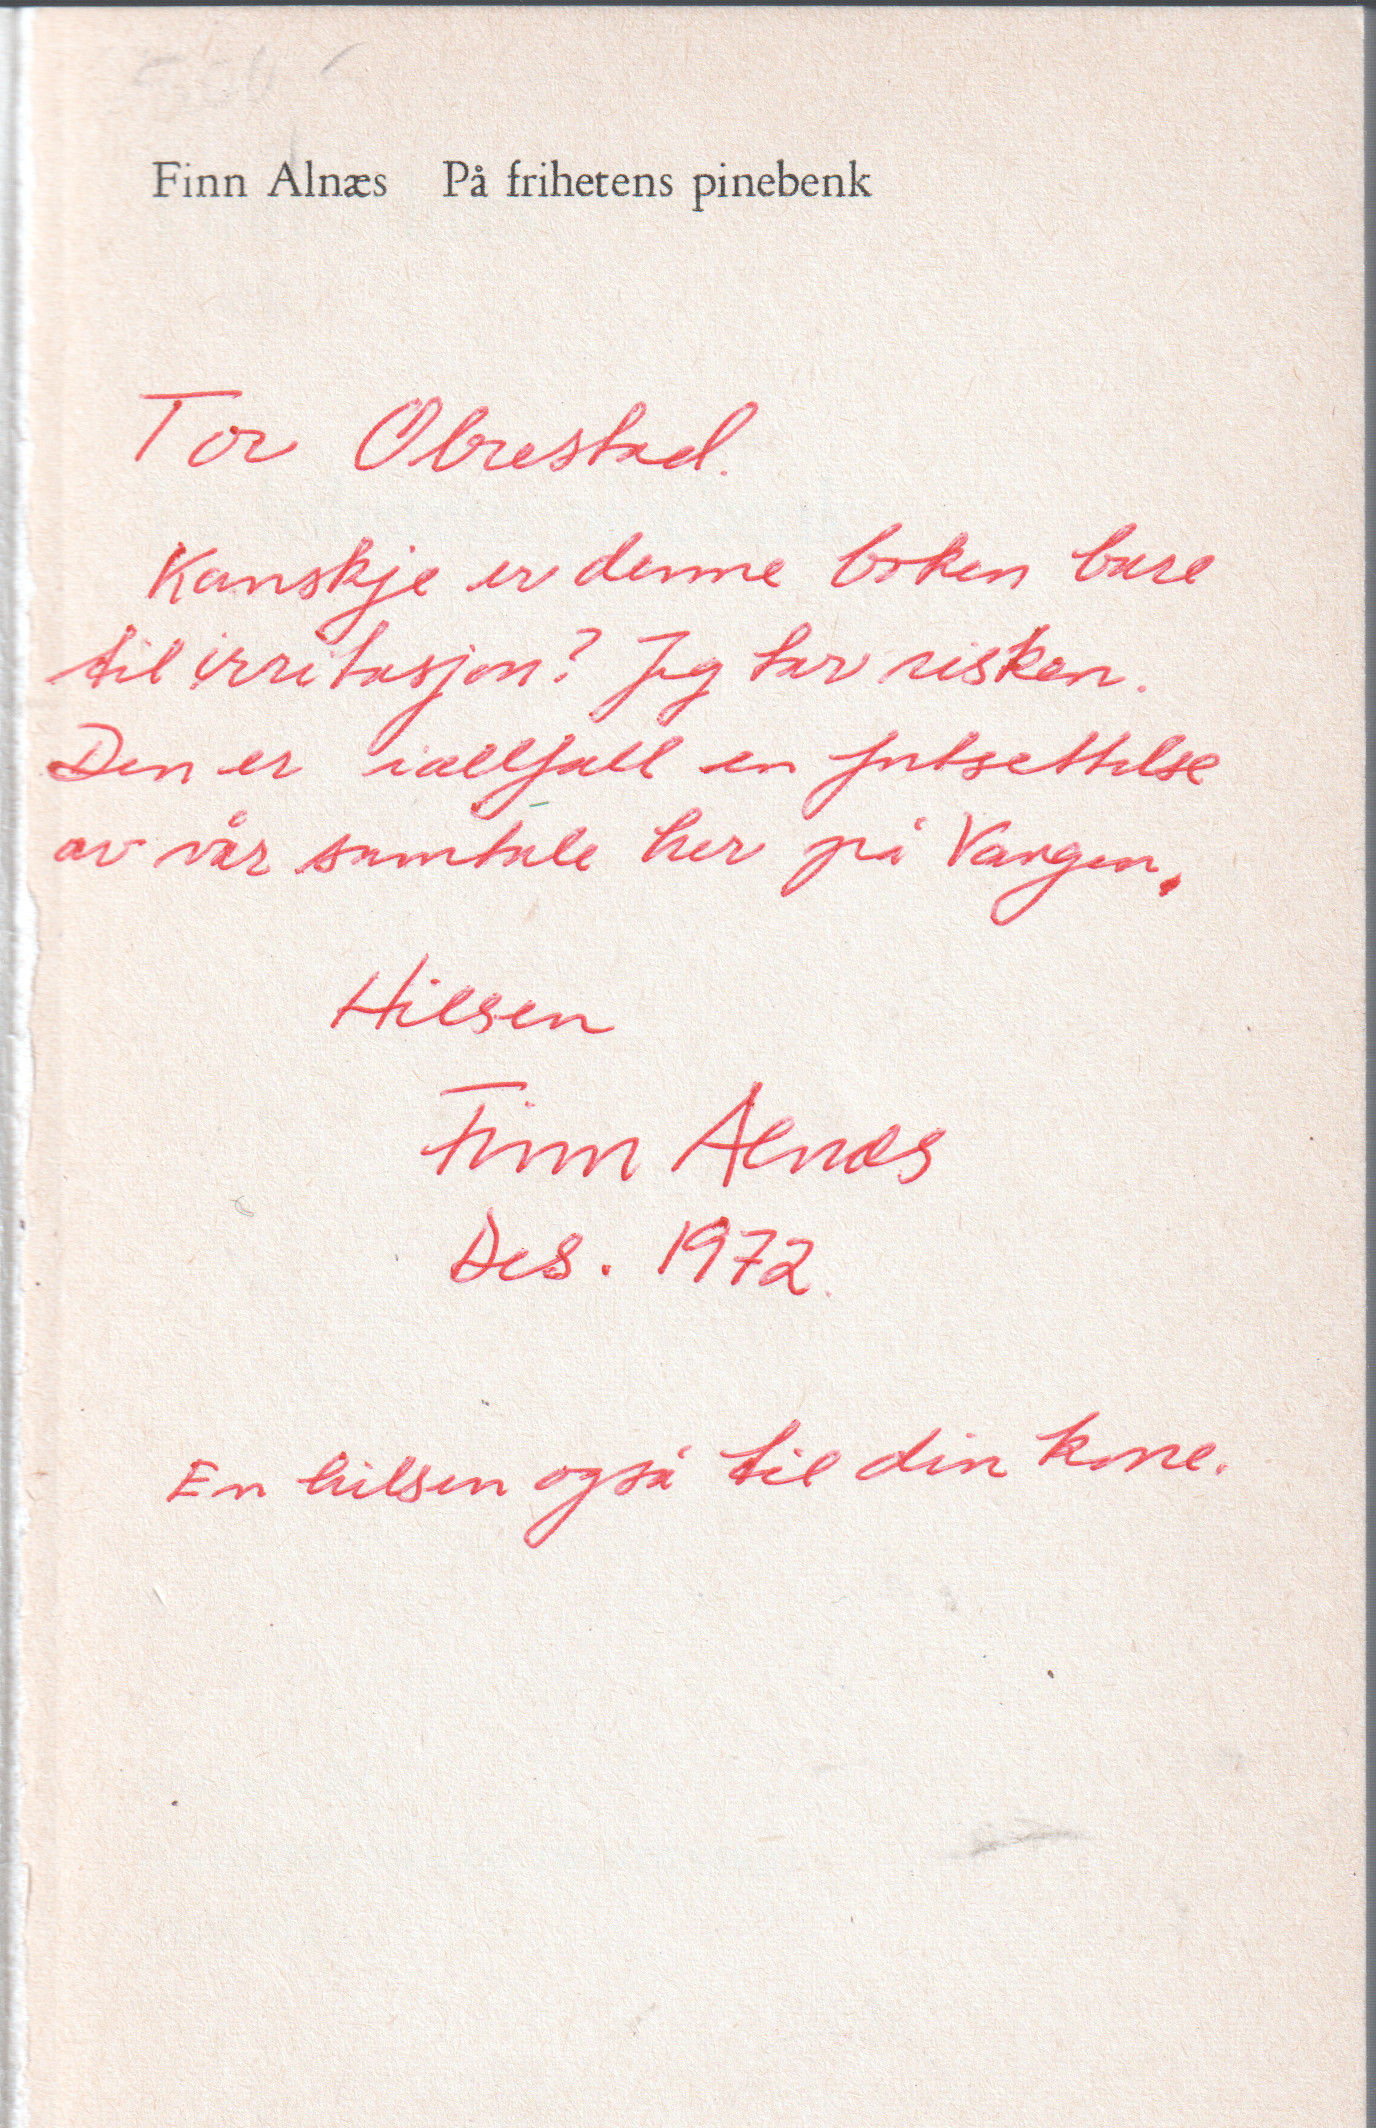 Finn Alnæs På frihetens pinebenk
Tor Obrestad.
Kanskje er denne boken bare
til irritasjon? Jeg tar risken.
Den er iallfall en fortsettelse
av vår samtale her på Vangen.
Hilsen
Finn Alnæs
Des. 1972.
En hilsen også til din kone.